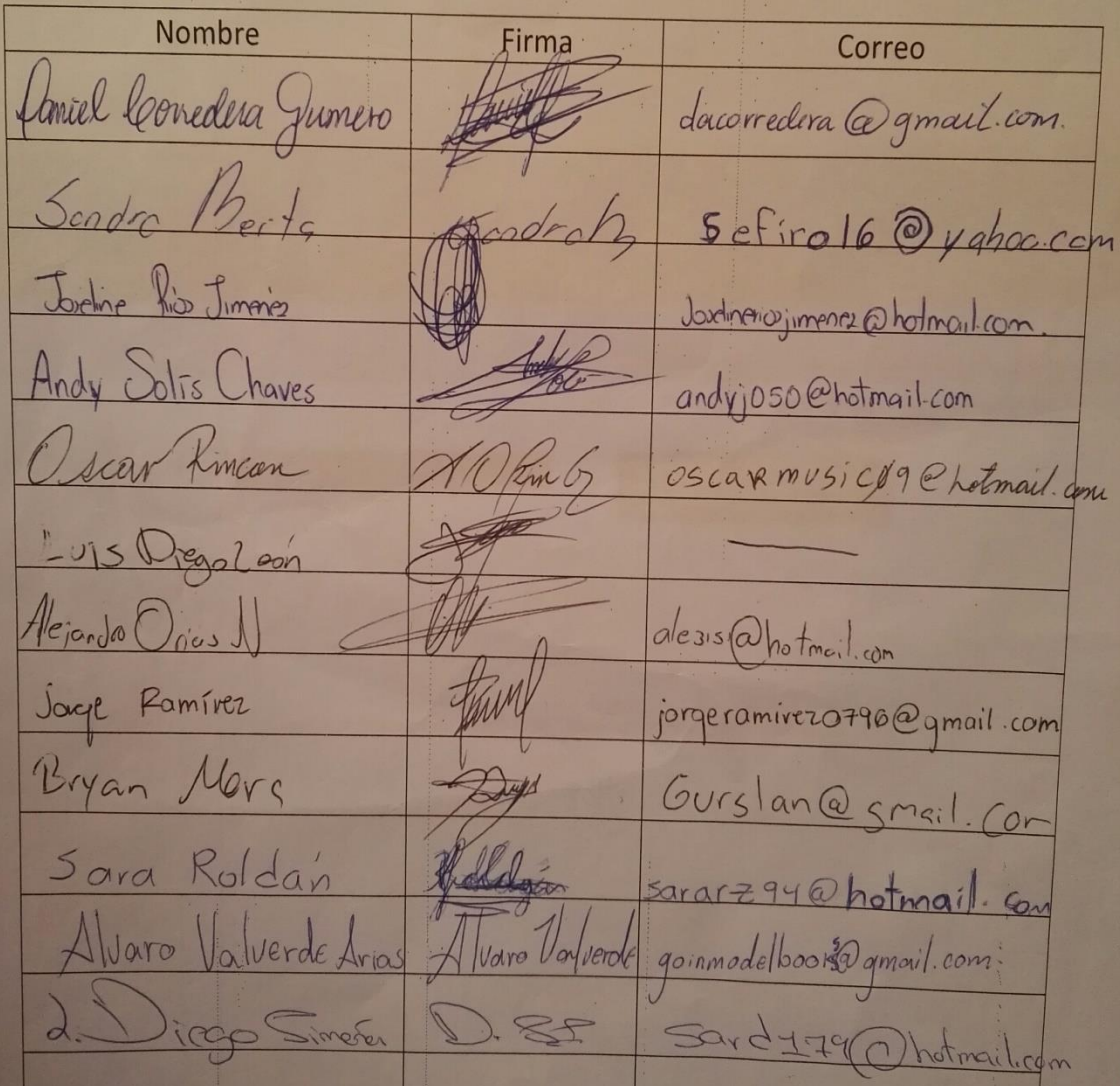 Nombre Firma Correo
Daniel Corredera Gumero dacorredera@gmail.com.
Sandra Berta Sandra b sefiro16@yahoo.com
Joseline Rios Jimenez Joselineriosjimenez@hotmail.com.
Andy Solís Chaves andyj050@hotmail.com
Oscar Rincon oscarmusic09@hotmail.com
Luis Diego León
Alejandro Orias N @hotmail.com
Jorge Ramírez jorgeramirez0796@gmail.com
Bryan Mora Gurslan@gmail.com
Sara Roldán sararz94@hotmail.com
Alvaro Valverde Arias Alvaro Valverde goinmodelbooks@gmail.com
L. Diego sard179@hotmail.com